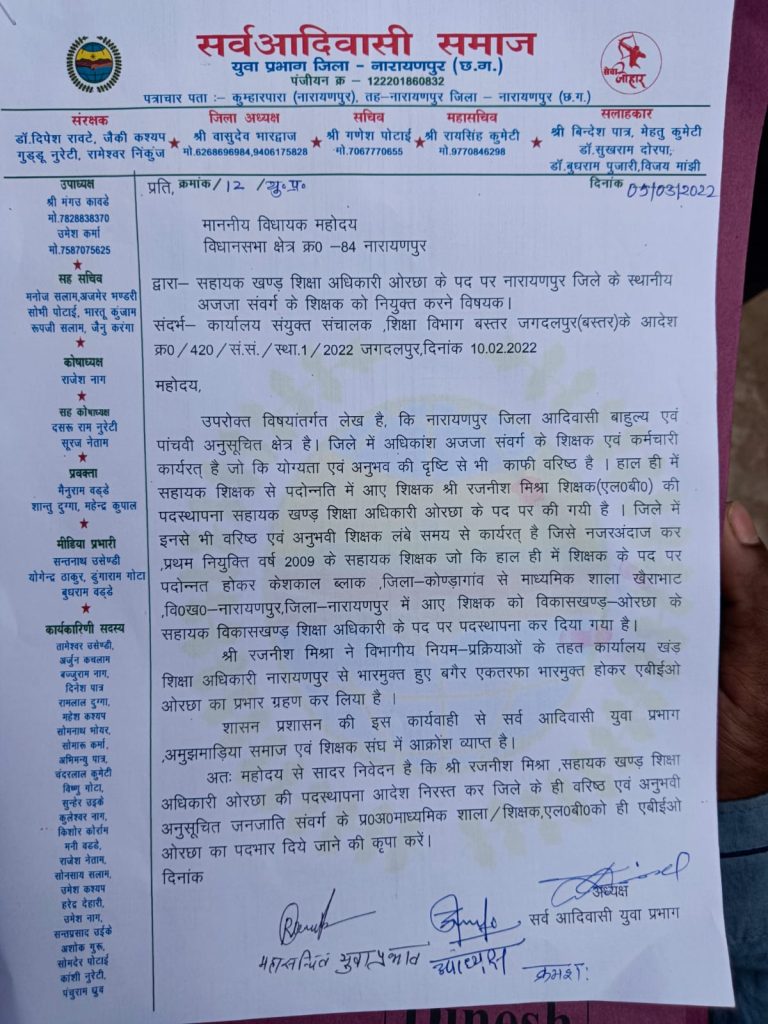 सर्वआदिवासी समाज
युवा प्रभाग जिला - नारायणपुर (छ.ग.)
पंजीयन क्र - 122201860832
पत्राचार पता :- कुम्हारपारा (नारायणपुर), तह-नारायणपुर जिला - नारायणपुर (छ.ग.)
सेवा जोहार
संरक्षक
डॉ.दिपेश रावटे, जैकी कश्यप
गुड्डू नुरेटी, रामेश्वर निकुंज
जिला अध्यक्ष
श्री वासुदेव भारद्वाज
मो.6268696984,9406175828
सचिव
श्री गणेश पोटाई
मो.7067770655
महासचिव
श्री रायसिंह कुमेटी
मो.9770846298
सलाहकार
श्री बिन्देश पात्र, मेहतु कुमेटी
डॉ.सुखराम दोरपा,
डॉ.बुधराम पुजारी,विजय मांझी
उपाध्यक्ष
श्री मंगउ कावडे
मो.7828838370
उमेश कर्मा
मो.7587075625
सह सचिव
मनोज सलाम,अजमेर भण्डरी
सोभी पोटाई, भारतू कुंजाम
रूपजी सलाम, जैनु करंगा
कोषाध्यक्ष
राजेश नाग
सह कोषाध्यक्ष
दसरू राम नुरेटी
सूरज नेताम
प्रवक्ता
मैनुराम वड्डे
शान्तु दुग्गा, महेन्द्र कुपाल
मीडिया प्रभारी
सन्तनाथ उसेण्डी
योगेन्द्र ठाकुर, डुंगाराम गोटा
बुधराम वड्डे
कार्यकारिणी सदस्य
तामेश्वर उसेण्डी,
अर्जुन कचलाम
बज्जुराम नाग,
दिनेश पात्र
रामलाल दुग्गा,
महेश कश्यप
सोमनाथ भोयर,
सोमारू कर्मा,
अभिमन्यु पात्र,
चंदरलाल कुमेटी
विष्णु गोटा,
सुन्हेर उइके
कुलेश्वर नाग,
किशोर कोर्राम
मनी वडडे,
राजेश नेताम,
सोनसाय सलाम,
उमेश कश्यप
हरेंद्र देहारी,
उमेश नाग,
सन्तप्रसाद उईके
अशोक गुरू,
सोमदेर पोटाई
कांशी नुरेटी,
पंचुराम ध्रुव
प्रति, क्रमांक/ 12 / यु.प्र.
दिनांक 05/03/2022
माननीय विधायक महोदय
विधानसभा क्षेत्र क्र0 -84 नारायणपुर
द्वारा- सहायक खण्ड शिक्षा अधिकारी ओरछा के पद पर नारायणपुर जिले के स्थानीय
अजजा संवर्ग के शिक्षक को नियुक्त करने विषयक।
संदर्भ- कार्यालय संयुक्त संचालक ,शिक्षा विभाग बस्तर जगदलपुर(बस्तर)के आदेश
क्र0/420/सं.सं./स्था.1/2022 जगदलपुर,दिनांक 10.02.2022
महोदय,
उपरोक्त विषयांतर्गत लेख है, कि नारायणपुर जिला आदिवासी बाहुल्य एवं
पांचवी अनुसूचित क्षेत्र है। जिले में अधिकांश अजजा संवर्ग के शिक्षक एवं कर्मचारी
कार्यरत् है जो कि योग्यता एवं अनुभव की दृष्टि से भी काफी वरिष्ठ है । हाल ही में
सहायक शिक्षक से पदोन्नति में आए शिक्षक श्री रजनीश मिश्रा शिक्षक(एल0बी0) की
पदस्थापना सहायक खण्ड शिक्षा अधिकारी ओरछा के पद पर की गयी है । जिले में
इनसे भी वरिष्ठ एवं अनुभवी शिक्षक लंबे समय से कार्यरत् है जिसे नजरअंदाज कर
,प्रथम नियुक्ति वर्ष 2009 के सहायक शिक्षक जो कि हाल ही में शिक्षक के पद पर
पदोन्नत होकर केशकाल ब्लाक ,जिला-कोण्ड़ागांव से माध्यमिक शाला खैराभाट
,वि0ख0-नारायणपुर,जिला-नारायणपुर में आए शिक्षक को विकासखण्ड़-ओरछा के
सहायक विकासखण्ड़ शिक्षा अधिकारी के पद पर पदस्थापना कर दिया गया है।
श्री रजनीश मिश्रा ने विभागीय नियम-प्रक्रियाओं के तहत कार्यालय खंड़
शिक्षा अधिकारी नारायणपुर से भारमुक्त हुए बगैर एकतरफा भारमुक्त होकर एबीईओ
ओरछा का प्रभार ग्रहण कर लिया है ।
शासन प्रशासन की इस कार्यवाही से सर्व आदिवासी युवा प्रभाग
,अमुझमाड़िया समाज एवं शिक्षक संघ में आक्रोंश व्याप्त है।
अतः महोदय से सादर निवेदन है कि श्री रजनीश मिश्रा ,सहायक खण्ड़ शिक्षा
अधिकारी ओरछा की पदस्थापना आदेश निरस्त कर जिले के ही वरिष्ठ एवं अनुभवी
अनुसूचित जनजाति संवर्ग के प्र0अ0माध्यमिक शाला/शिक्षक,एल0बी0को ही एबीईओ
ओरछा का पदभार दिये जाने की कृपा करें।
दिनांक
अध्यक्ष
सर्व आदिवासी युवा प्रभाग
युवा प्रभाग
क्रमशः
Dinesh